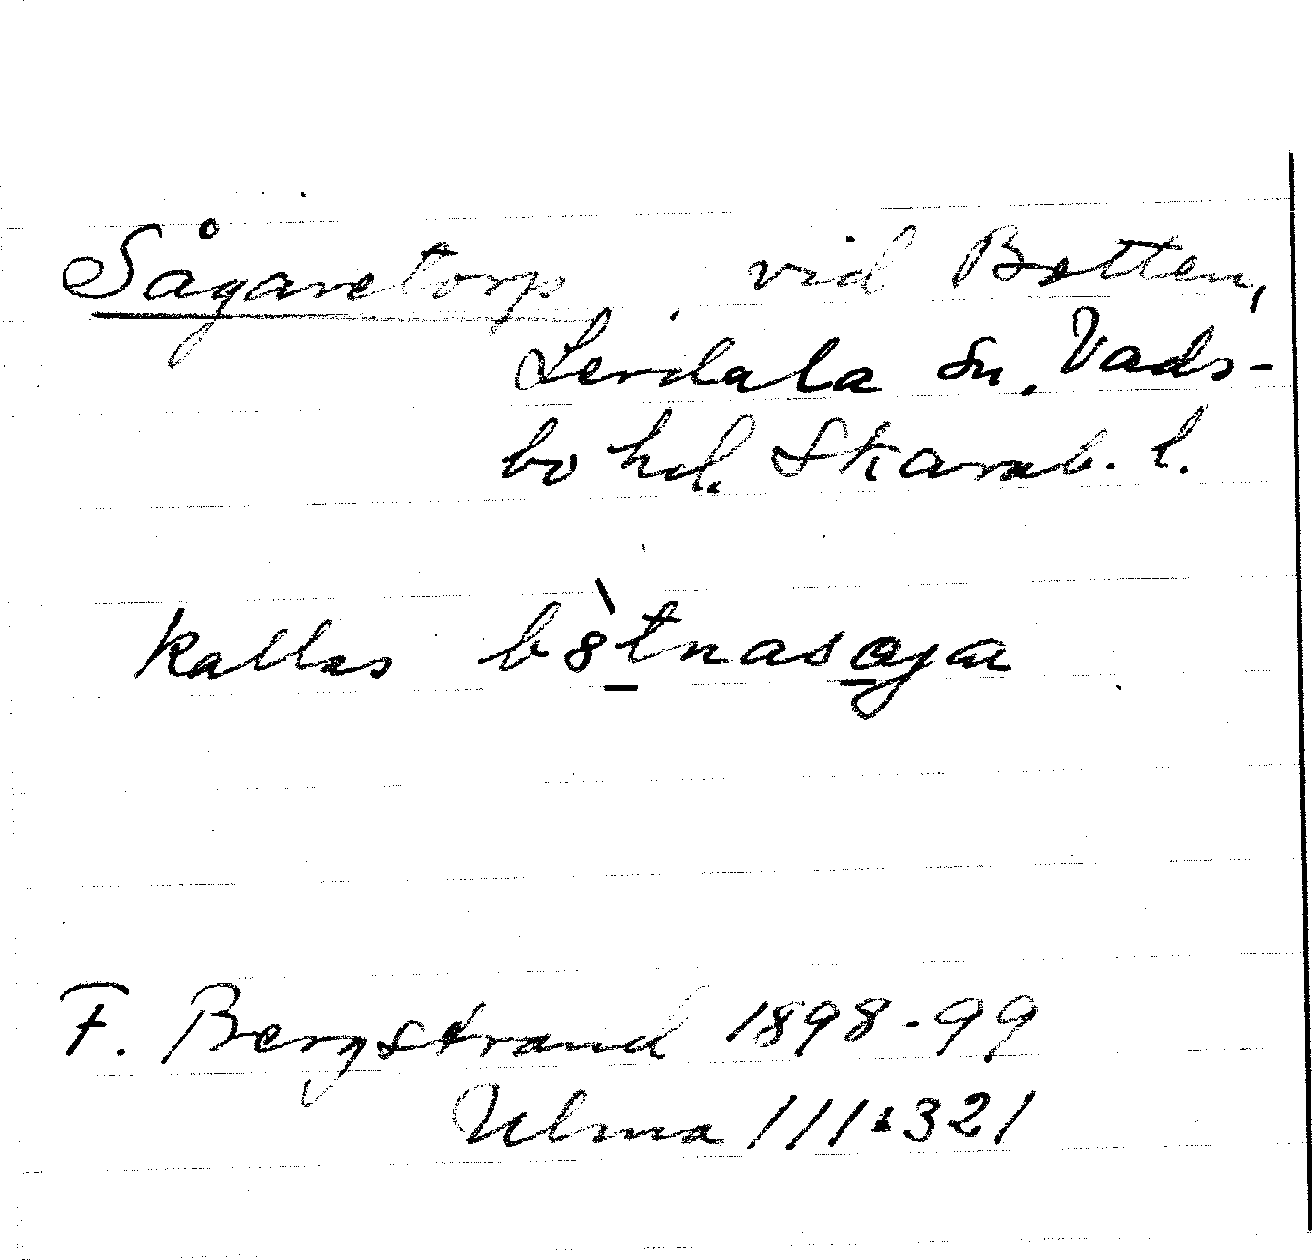 Sågaretorp vid Botten,
Lerdala sn. Vads-
bo hd. Skarab. l.
kallas b8̀tnasaja
F. Bergstrand 1898-99
Ulma 111:321